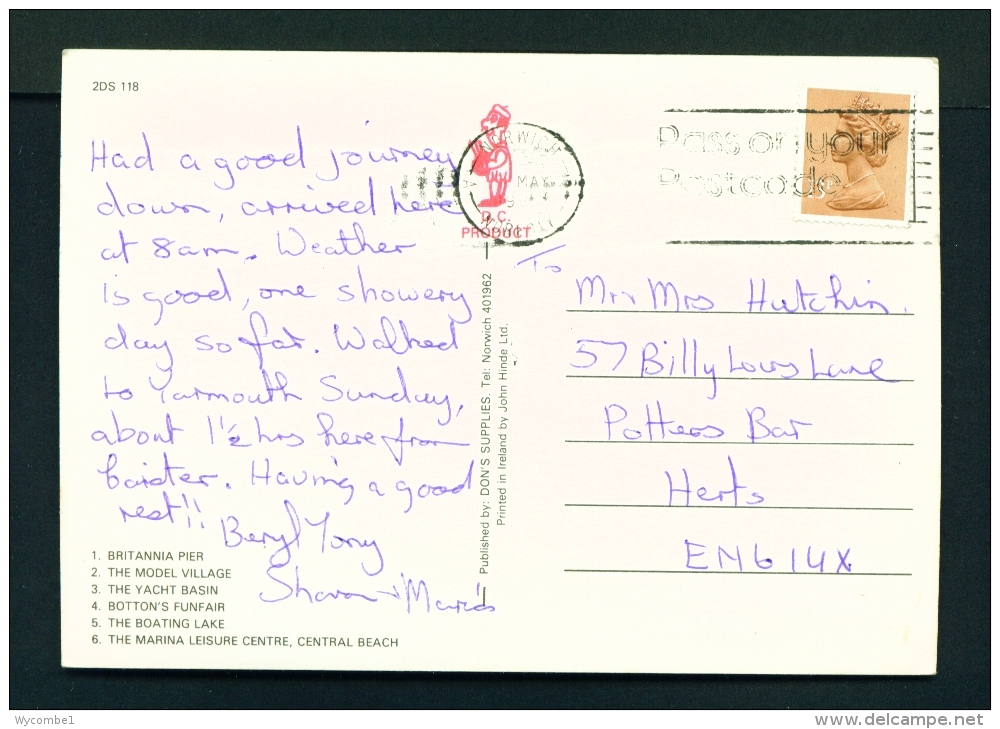 2DS 118
Had a good journey
down, arrived here
at 8am. Weather
is good, one showery
day so far. Walked
to Yarmouth Sunday,
about 1½ hrs here from
Caister. Having a good
rest!!
Beryl Tony
Sharon +
1. BRITANNIA PIER
2. THE MODEL VILLAGE
3. THE YACHT BASIN
4. BOTTON'S FUNFAIR
5. THE BOATING LAKE
6. THE MARINA LEISURE CENTRE, CENTRAL BEACH
D.C.
PRODUCT
Published by: DON'S SUPPLIES. Tel: Norwich 401962
Printed in Ireland by John Hinde Ltd.
NORWICH
MAY
NORFOLK
Pass on your
Postcode
To
Mr + Mrs Hutchin.
57 Billy Lows Lane
Potters Bar
Herts
EN6 1UX
Wycombe1
www.delcampe.net